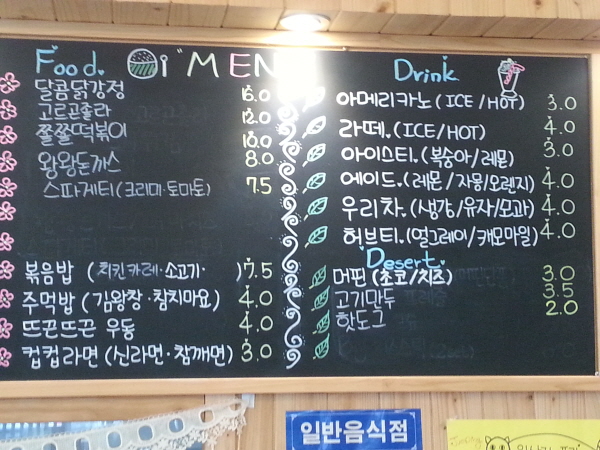 Food. MEN
달콤닭강정 15.0
고르곤졸라 12.0
쫄쫄떡볶이 10.0
왕왕돈까스 8.0
스파게티(크리미·토마토) 7.5
볶음밥 (치킨카레·소고기· )7.5
주먹밥 (김왕창·참치마요) 4.0
뜨끈뜨끈 우동 4.0
컵컵라면 (신라면·참깨면) 3.0
Drink
아메리카노(ICE/HOT) 3.0
라떼.(ICE/HOT) 4.0
아이스티.(복숭아/레몬) 3.0
에이드.(레몬/자몽/오렌지) 4.0
우리차.(생강/유자/모과) 4.0
허브티.(얼그레이/캐모마일) 4.0
Desert.
머핀 (초코/치즈) 3.0
고기만두 3.5
핫도그 2.0
일반음식점